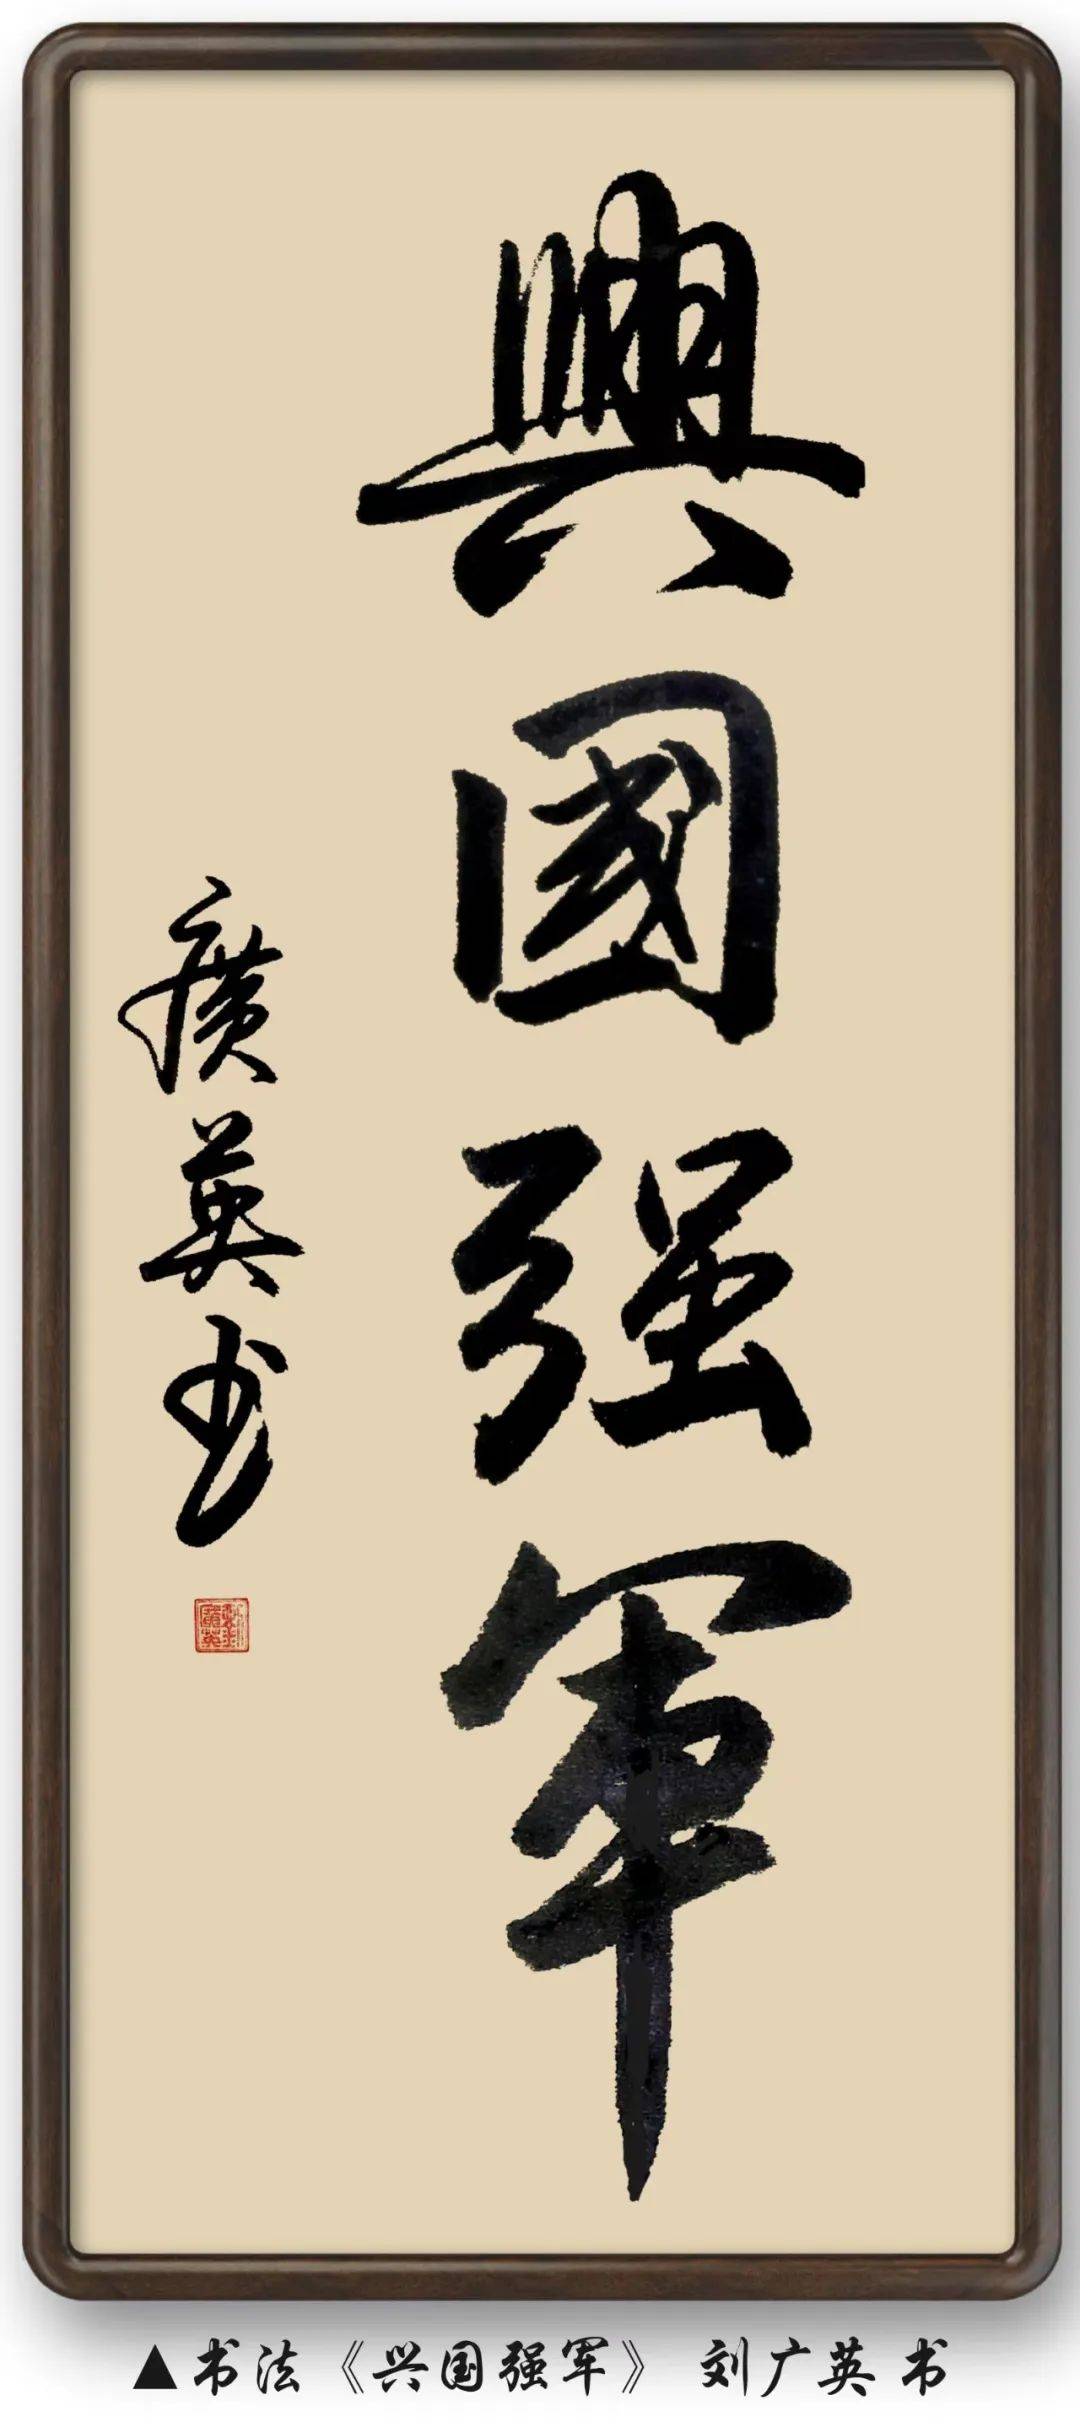 興國强軍
廣英书
▲书法《兴国强军》 刘广英 书